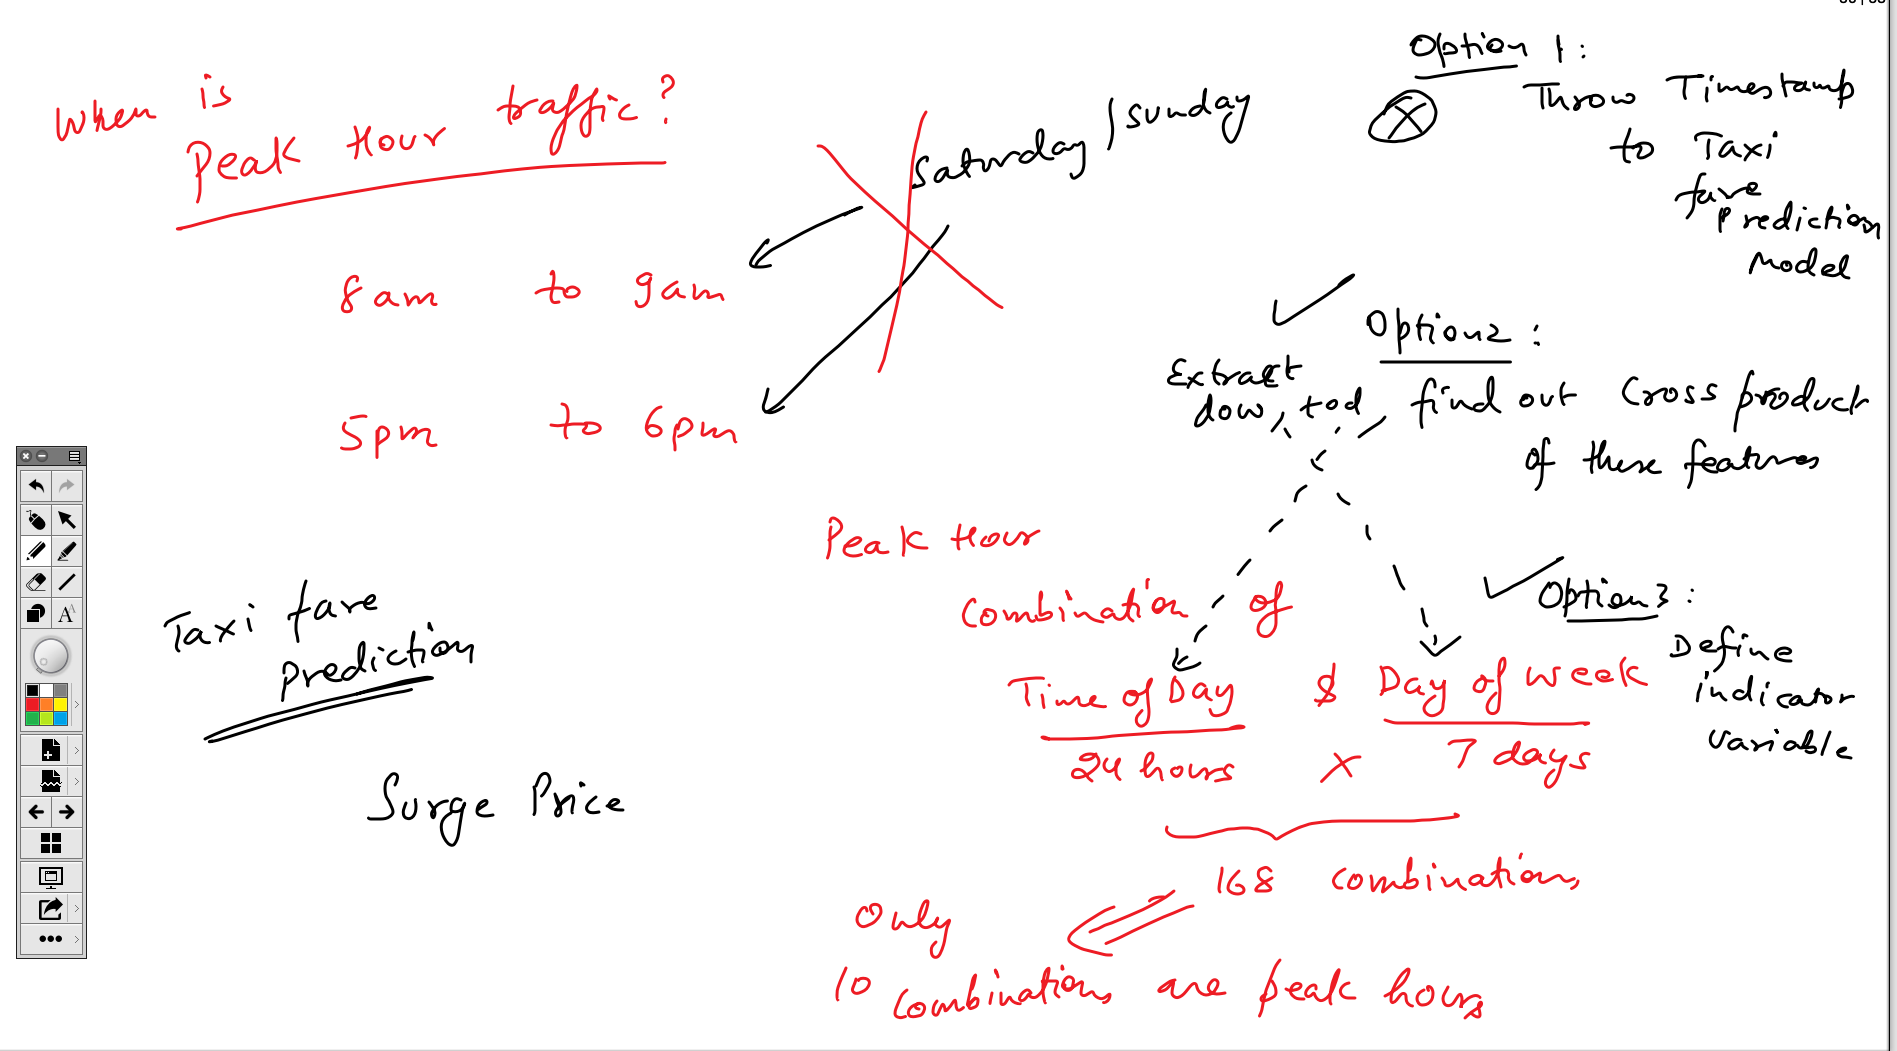 When is
Peak Hour traffic?
Saturday / Sunday
8am to 9am
5pm to 6pm
Option 1:
Throw Timestamp
to Taxi
fare
Prediction
Model
Option 2:
Extract
dow, tod, find out Cross product
of these features
Peak Hour
Combination of
Time of Day & Day of week
24 hours x 7 days
168 combinations
Only
10 combinations are peak hours
Option 3:
Define
indicator
variable
Taxi fare
Prediction
Surge Price
A